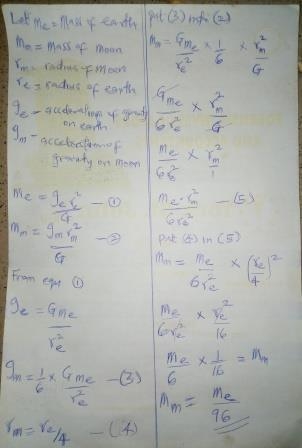 Let Me = Mass of earth
Mm = Mass of Moon
rm = radius of moon
re = radius of earth
ge - acceleration of gravity on earth
gm - acceleration of gravity on Moon
Me = ge re²/G — ①
Mm = gm rm²/G — ②
From equ ①
ge = GMe/re²
gm = 1/6 × GMe/re² — (3)
rm = re/4 — (4)
put (3) into (2)
Mm = GMe/re² × 1/6 × rm²/G
GMe/6re² × rm²/G
Me/6re² × rm²/1
Me·rm²/6re² — (5)
put (4) in (5)
Mm = Me/6re² × (re/4)²
Me/6re² × re²/16
Me/6 × 1/16 = Mm
Mm = Me/96